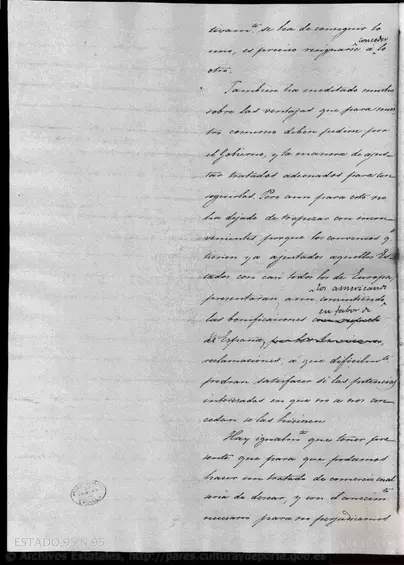 tivam.te se ha de conseguir lo
uno, es preciso resignarse a conceder lo
otro.
Tambien ha meditado mucho
sobre las ventajas que para nues
tro comercio deben pedirse por
el Gobierno, y la manera de ajus
tar tratados adecuados para con
seguirlas. Pero aun para esto no
ha dejado de tropezar con incon
venientes porque los convenios q.e
tienen ya ajustados aquellos Es
tados con casi todos los de Europa,
presentaran aun consintiendo los americanos
las bonificaciones en fabor de
de España,
reclamaciones, a que dificilm.te
podran satisfacer si las potencias
interesadas en que no a nos con
cedan se las hicieren
Hay igualm.te que tener pre
sente que para que podamos
hacer un tratado de comercio cual
seria de desear, y con el
necesario para no perjudicarnos
ESTADO,95,N.95
© Archivos Estatales, http://pares.culturaydeporte.gob.es